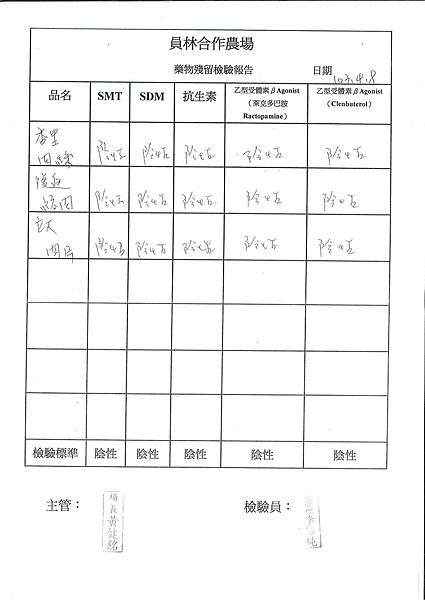 員林合作農場
藥物殘留檢驗報告 日期 103.4.8
品名 SMT SDM 抗生素 乙型受體素βAgonist（萊克多巴胺 Ractopamine） 乙型受體素βAgonist（Clenbuterol）
肉絲 陰性 陰性 陰性 陰性 陰性
陰性 陰性 陰性 陰性 陰性
肉片 陰性 陰性 陰性 陰性 陰性
檢驗標準 陰性 陰性 陰性 陰性 陰性
主管： 場長黃健銘 檢驗員：